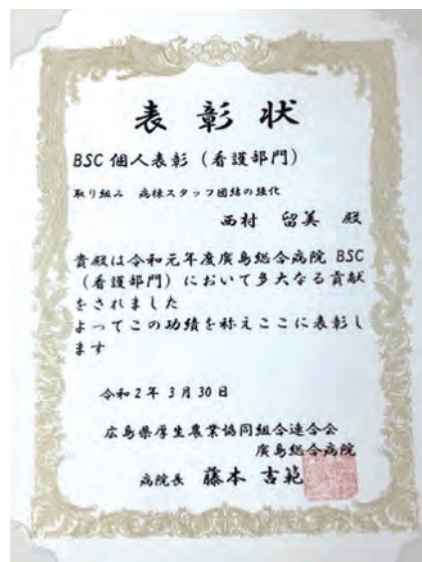 表彰状
BSC 個人表彰（看護部門）
取り組み 病棟スタッフ団結の強化
西村 留美 殿
貴殿は令和元年度廣島総合病院 BSC
（看護部門）において多大なる貢献
をされました
よってこの功績を称えここに表彰し
ます
令和2年 3月30日
広島県厚生農業協同組合連合会
廣島総合病院
病院長 藤本 吉範